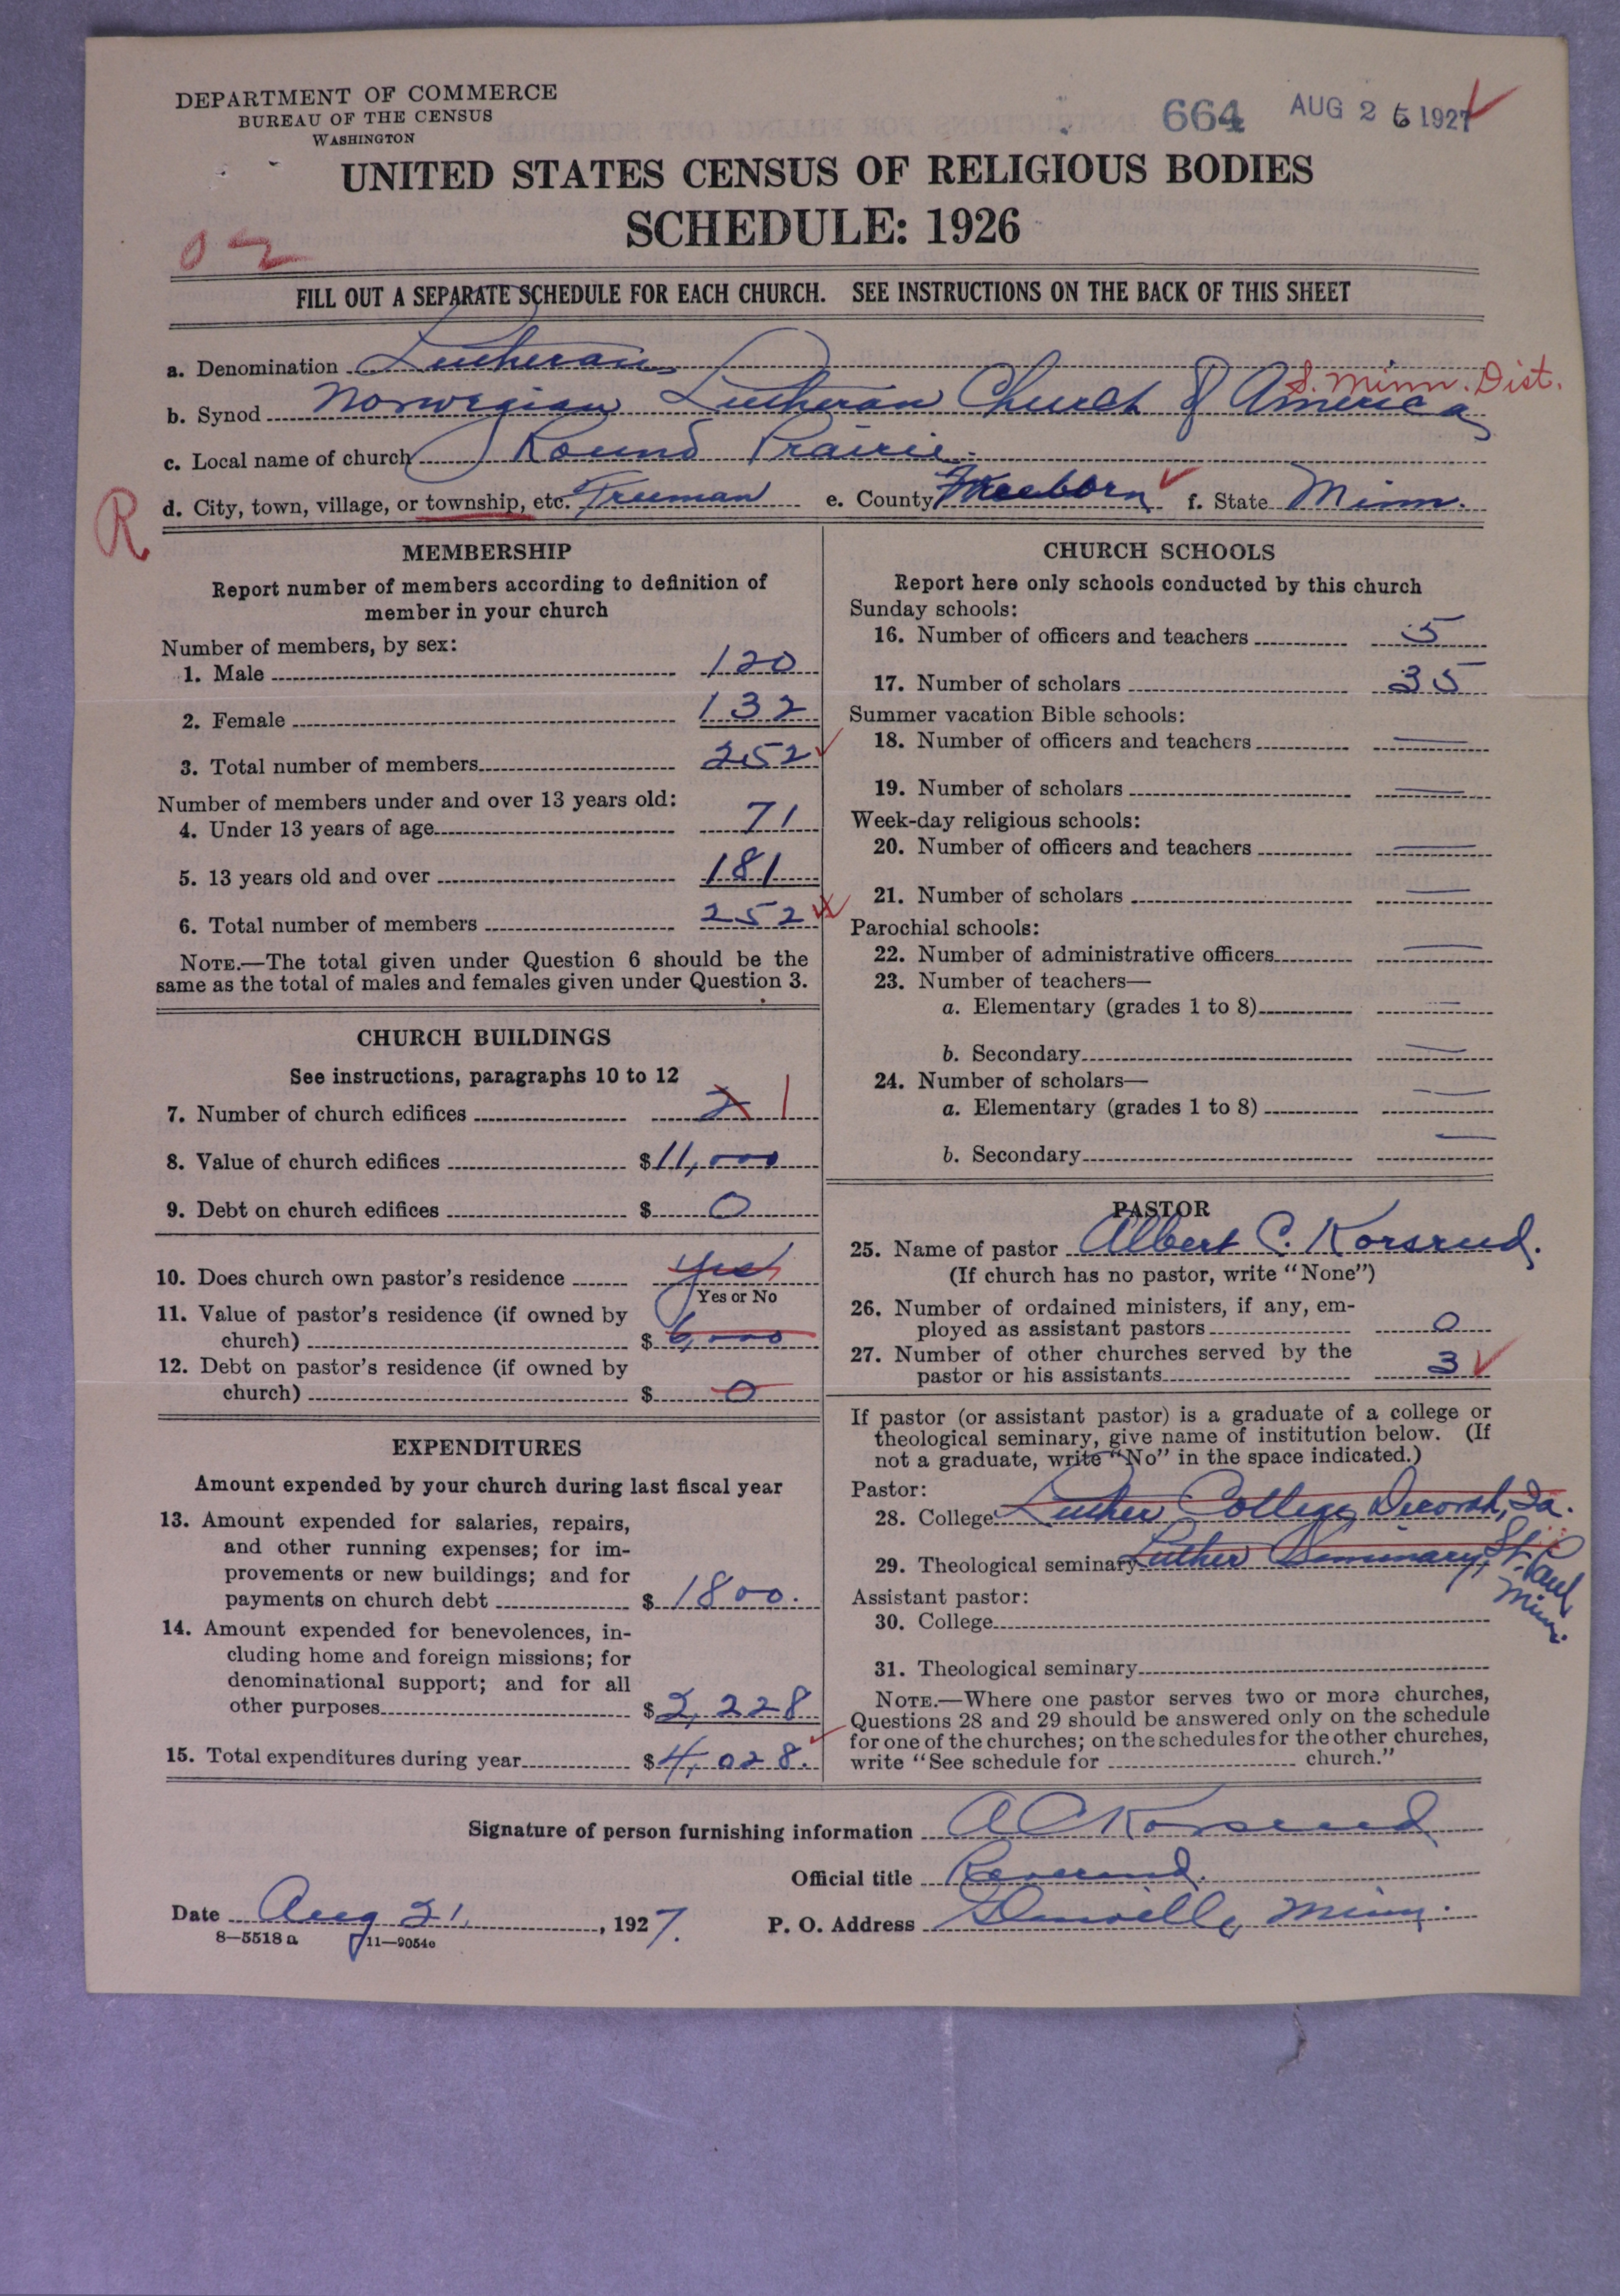 DEPARTMENT OF COMMERCE
BUREAU OF THE CENSUS
WASHINGTON
664 AUG 26 1927
UNITED STATES CENSUS OF RELIGIOUS BODIES
SCHEDULE: 1926
02
FILL OUT A SEPARATE SCHEDULE FOR EACH CHURCH. SEE INSTRUCTIONS ON THE BACK OF THIS SHEET
a. Denomination Lutheran
S. Minn. Dist.
b. Synod Norwegian Lutheran Church of America
c. Local name of church Round Prairie
R
d. City, town, village, or township, etc. Freeman e. County Freeborn f. State Minn.
MEMBERSHIP
Report number of members according to definition of
member in your church
Number of members, by sex:
1. Male 120
2. Female 132
3. Total number of members 252
Number of members under and over 13 years old:
4. Under 13 years of age 71
5. 13 years old and over 181
6. Total number of members 252
NOTE.—The total given under Question 6 should be the
same as the total of males and females given under Question 3.
CHURCH BUILDINGS
See instructions, paragraphs 10 to 12
7. Number of church edifices 2 1
8. Value of church edifices $11,000
9. Debt on church edifices $ 0
10. Does church own pastor's residence yes
Yes or No
11. Value of pastor's residence (if owned by
church) $ 6,000
12. Debt on pastor's residence (if owned by
church) $ 0
EXPENDITURES
Amount expended by your church during last fiscal year
13. Amount expended for salaries, repairs,
and other running expenses; for im-
provements or new buildings; and for
payments on church debt $ 1800.
14. Amount expended for benevolences, in-
cluding home and foreign missions; for
denominational support; and for all
other purposes $2,228
15. Total expenditures during year $4,028.
CHURCH SCHOOLS
Report here only schools conducted by this church
Sunday schools:
16. Number of officers and teachers 5
17. Number of scholars 35
Summer vacation Bible schools:
18. Number of officers and teachers —
19. Number of scholars —
Week-day religious schools:
20. Number of officers and teachers —
21. Number of scholars —
Parochial schools:
22. Number of administrative officers —
23. Number of teachers—
a. Elementary (grades 1 to 8) —
b. Secondary —
24. Number of scholars—
a. Elementary (grades 1 to 8) —
b. Secondary —
PASTOR
25. Name of pastor Albert C. Korsrud.
(If church has no pastor, write "None")
26. Number of ordained ministers, if any, em-
ployed as assistant pastors 0
27. Number of other churches served by the
pastor or his assistants 3
If pastor (or assistant pastor) is a graduate of a college or
theological seminary, give name of institution below. (If
not a graduate, write "No" in the space indicated.)
Pastor:
28. College Luther College, Decorah, Ia.
29. Theological seminary Luther Seminary, St. Paul
Minn.
Assistant pastor:
30. College
31. Theological seminary
NOTE.—Where one pastor serves two or more churches,
Questions 28 and 29 should be answered only on the schedule
for one of the churches; on the schedules for the other churches,
write "See schedule for church."
Signature of person furnishing information A C Korsrud
Official title Reverend.
Date Aug 21, 1927. P. O. Address Glenville, Minn.
8—5518 a 11—9054c